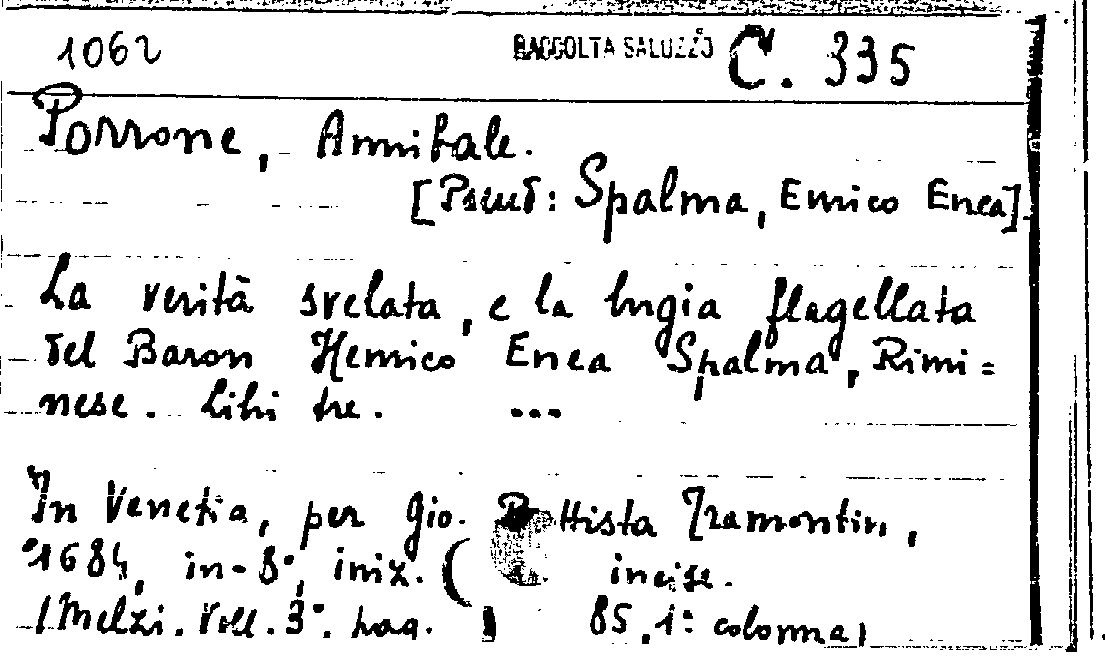 1062 RACCOLTA SALUZZO C. 335
Porrone, Annibale.
[Pseud: Spalma, Enrico Enea]
La verità svelata, e la bugia flagellata
del Baron Henrico Enea Spalma, Rimi=
nese. Libri tre. ...
In Venetia, per Gio. Battista Tramontin,
1684, in-8°, iniz. incise.
(Melzi. Vol. 3°. pag. 85, 1ª colonna)